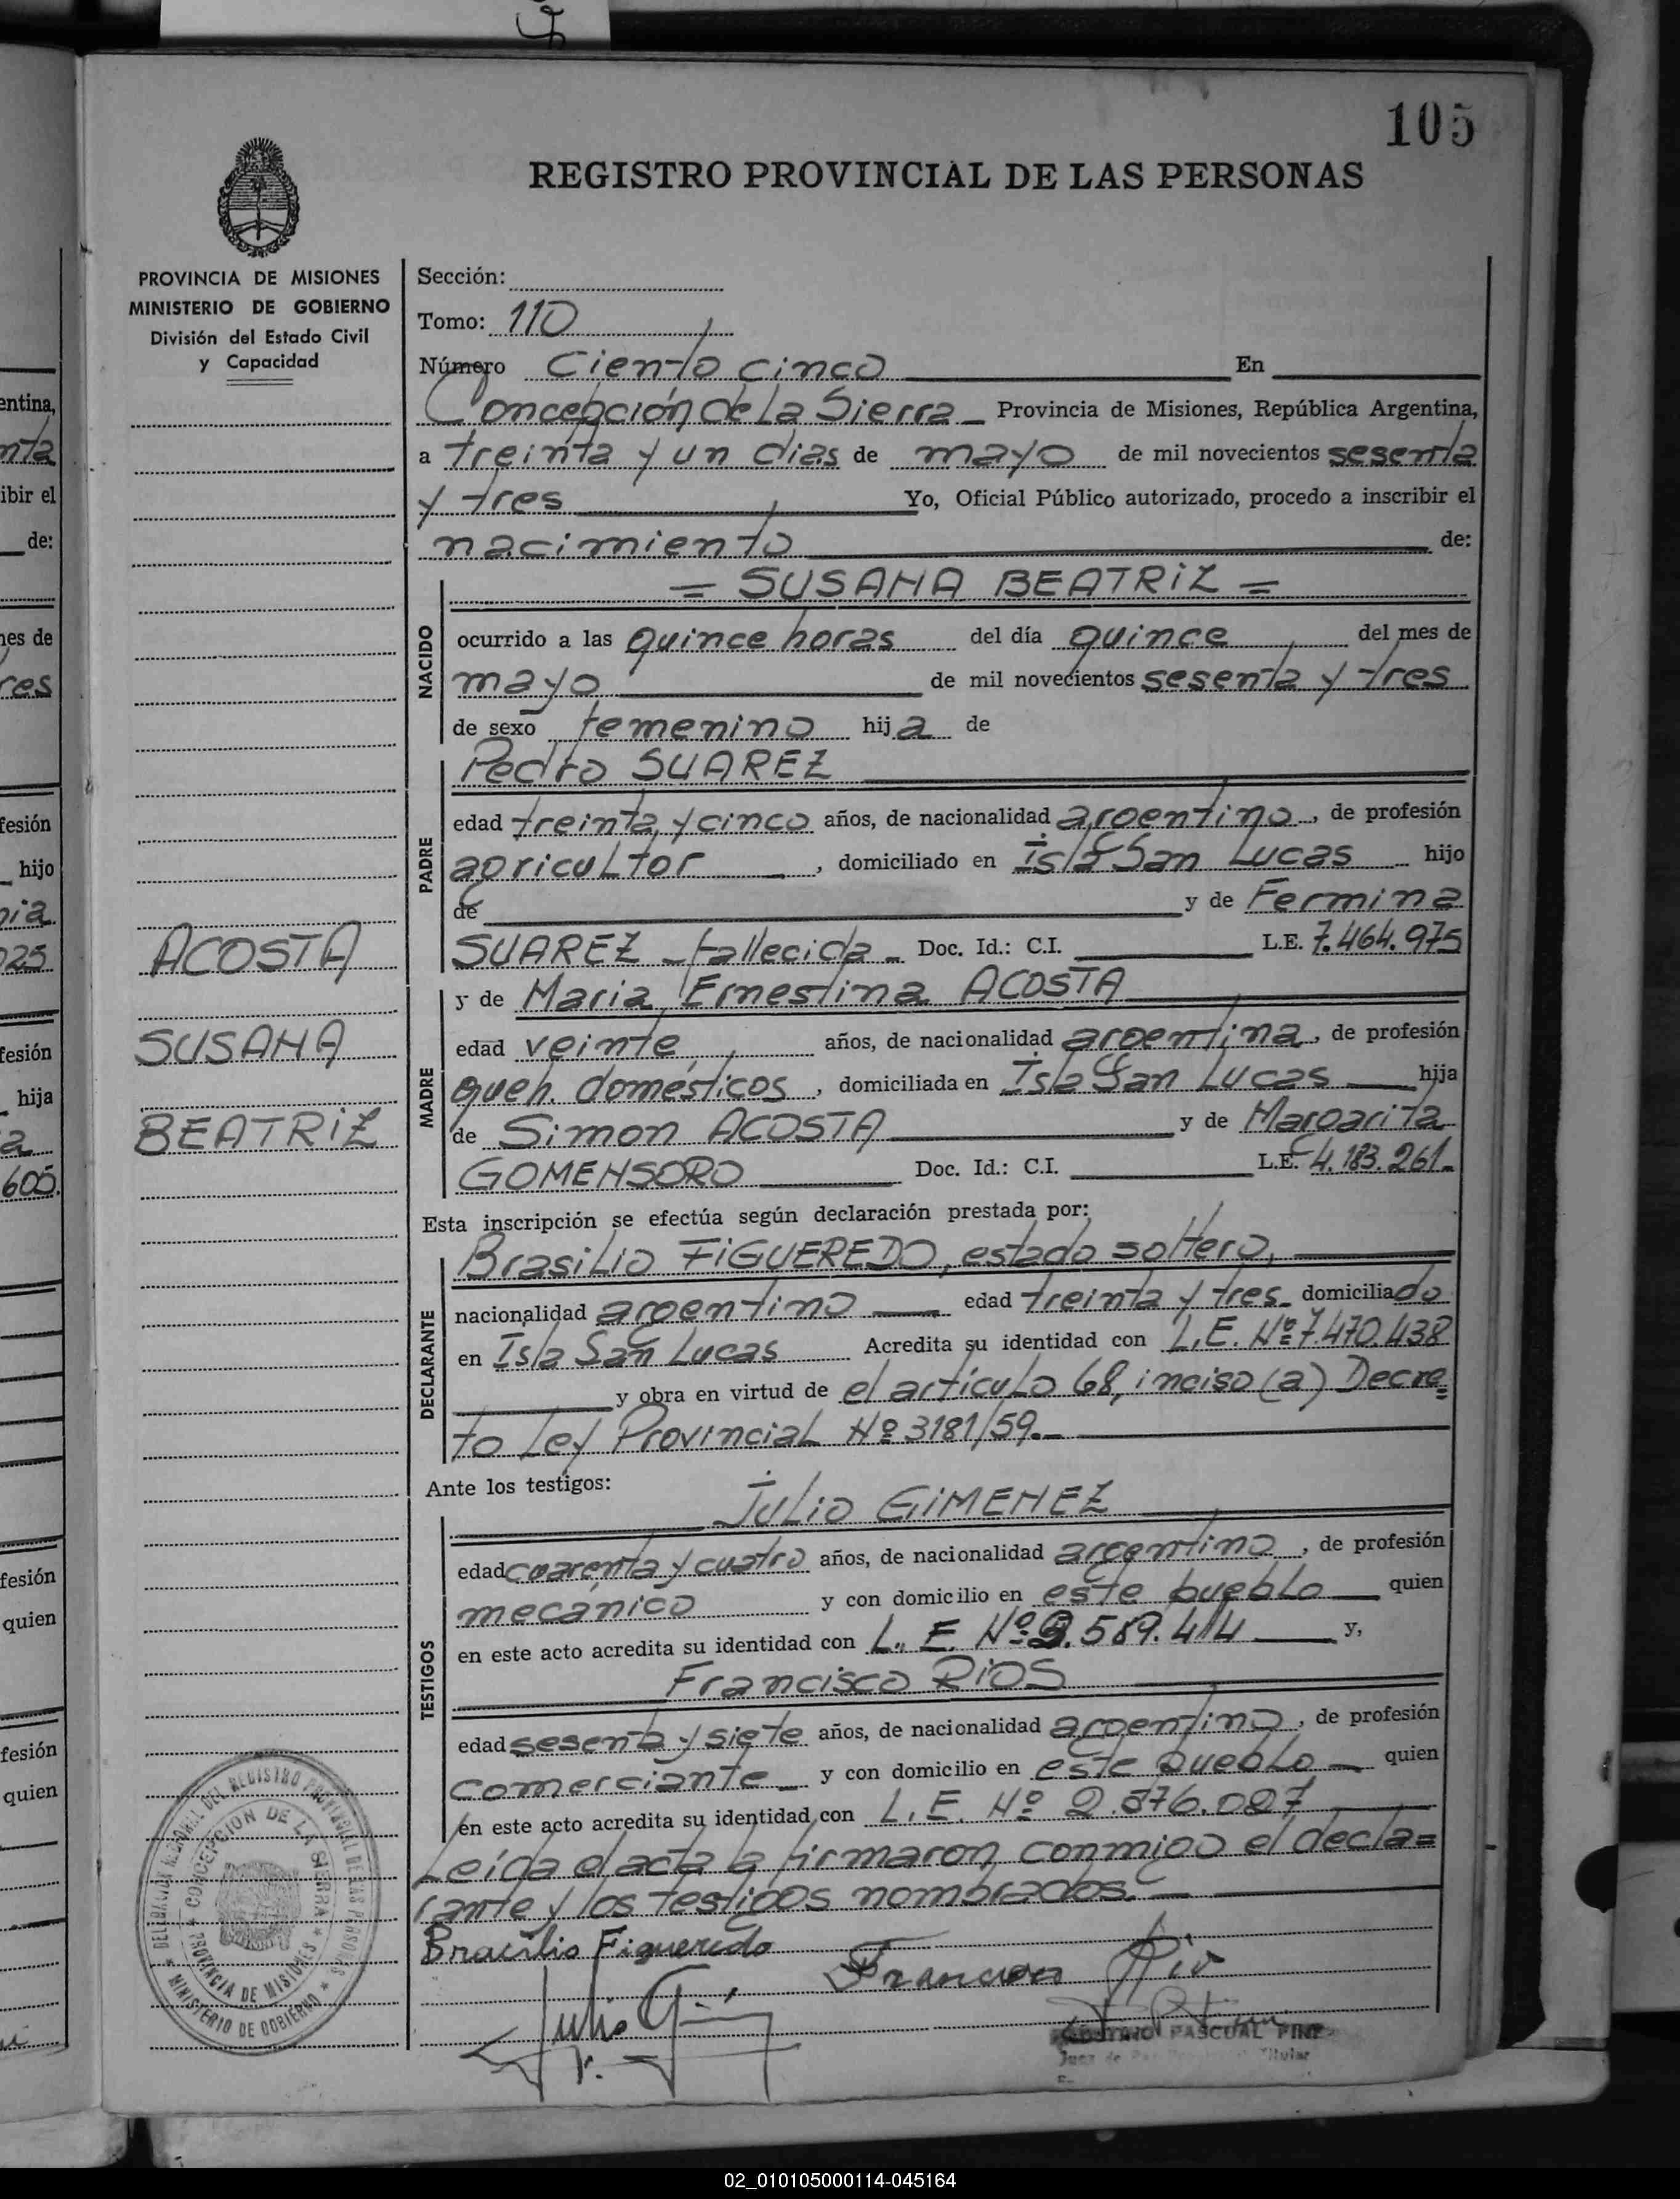 105
REGISTRO PROVINCIAL DE LAS PERSONAS
PROVINCIA DE MISIONES
MINISTERIO DE GOBIERNO
División del Estado Civil
y Capacidad
Sección:
Tomo: 110
Número Ciento cinco En
Concepción de La Sierra Provincia de Misiones, República Argentina,
a treinta y un días de mayo de mil novecientos sesenta
y tres Yo, Oficial Público autorizado, procedo a inscribir el
nacimiento de:
= SUSANA BEATRIZ =
NACIDO
ocurrido a las quince horas del día quince del mes de
mayo de mil novecientos sesenta y tres
de sexo femenino hija de
Pedro SUAREZ
PADRE
edad treinta y cinco años, de nacionalidad argentino, de profesión
agricultor, domiciliado en Isla San Lucas hijo
de y de Fermina
SUAREZ - fallecida - Doc. Id.: C.I. L.E. 7.464.975
ACOSTA
SUSANA
BEATRIZ
y de Maria Ernestina ACOSTA
MADRE
edad veinte años, de nacionalidad argentina, de profesión
queh. domésticos, domiciliada en Isla San Lucas hija
de Simon ACOSTA y de Margarita
GOMENSORO Doc. Id.: C.I. L.E. 4.183.261-
Esta inscripción se efectúa según declaración prestada por:
Brasilio FIGUEREDO, estado soltero,
DECLARANTE
nacionalidad argentino edad treinta y tres domiciliado
en Isla San Lucas Acredita su identidad con L.E. Nº 7.470.438
y obra en virtud de el artículo 68, inciso (a) Decre=
to Ley Provincial Nº 3181/59.-
Ante los testigos:
Julio GIMENEZ
TESTIGOS
edad cuarenta y cuatro años, de nacionalidad argentino, de profesión
mecánico y con domicilio en este pueblo quien
en este acto acredita su identidad con L. E. Nº .589.414 y,
Francisco RIOS
edad sesenta y siete años, de nacionalidad argentino, de profesión
comerciante y con domicilio en este pueblo quien
en este acto acredita su identidad con L.E. Nº 2.576.087
Leída el acta la firmaron conmigo el decla=
rante y los testigos nombrados.-
Bracilio Figueredo
Francisco Rio
Julio
PASCUAL
DELEGACION REGIONAL DEL REGISTRO PROVINCIAL DE LAS PERSONAS
CONCEPCION DE LA SIERRA
PROVINCIA DE MISIONES
MINISTERIO DE GOBIERNO
entina,
nta
ibir el
de:
nes de
res
fesión
hijo
nia
025
fesión
hija
a
605.
fesión
quien
fesión
quien
02_010105000114-045164